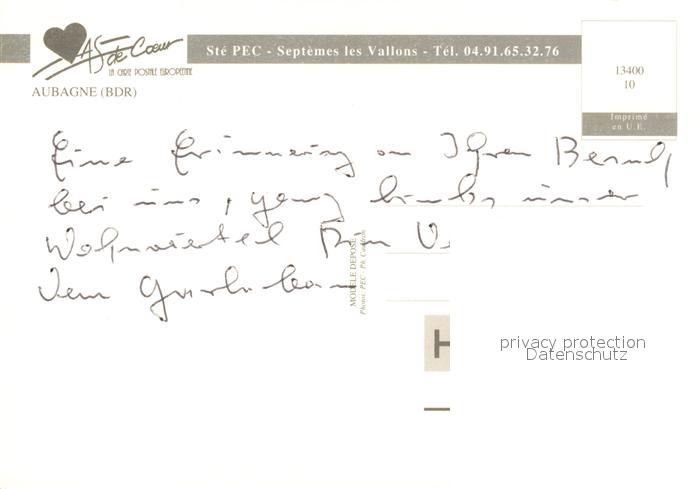 As de Coeur
LA CARTE POSTALE EUROPEENNE
Sté PEC - Septèmes les Vallons - Tél. 04.91.65.32.76
AUBAGNE (BDR)
13400
10
Imprimé
en U.E.
Eine Erinnerung an Ihren Besuch
bei uns, ganz links unser
Wohnviertel
MODELE DEPOSE
Photos PEC
privacy protection
Datenschutz